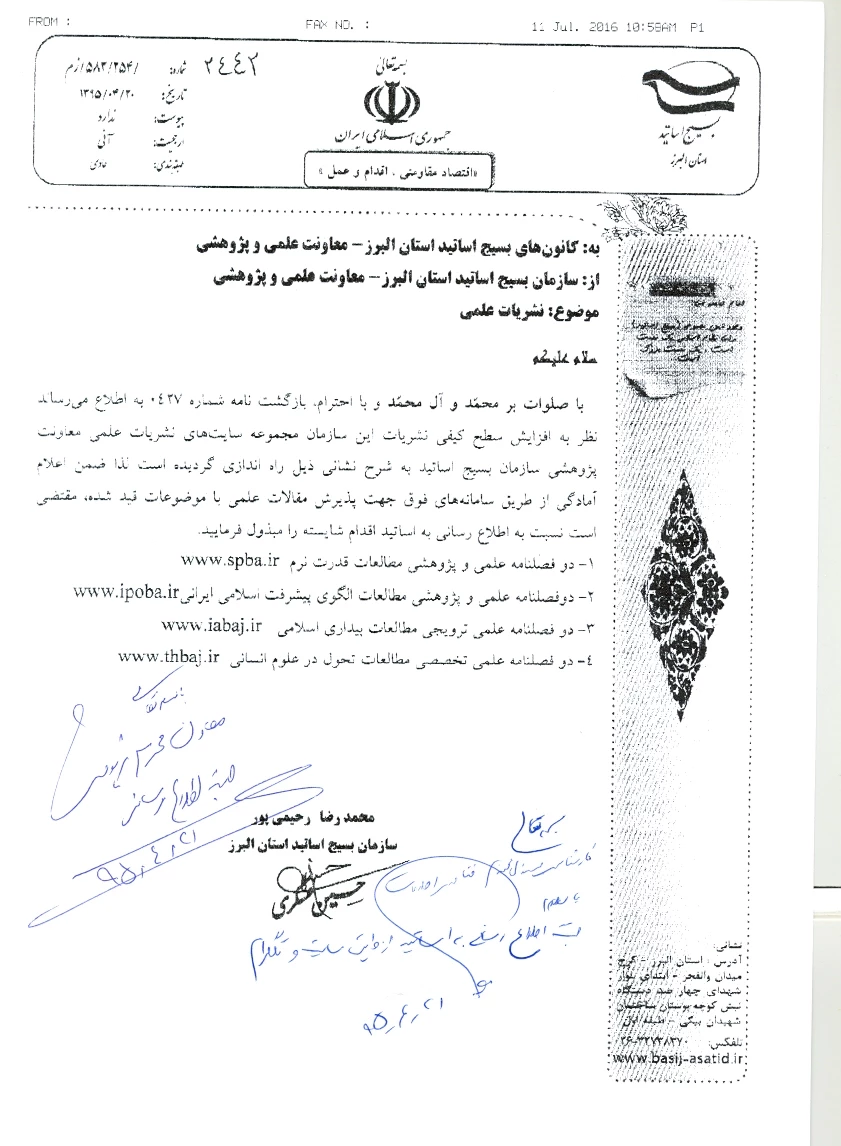 FROM :
FAX NO. :
11 Jul. 2016 10:58AM P1
بسمه تعالی
جمهوری اسلامی ایران
«اقتصاد مقاومتی ، اقدام و عمل»
بسیج اساتید
استان البرز
۲٤٤۲
شماره: /۵۸۳/۲۵۴/ازم
تاریخ: ۱۳۹۵/۰۴/۲۰
پیوست: ندارد
ارجحیت: آنی
طبقه‌بندی: عادی
به: کانون‌های بسیج اساتید استان البرز – معاونت علمی و پژوهشی
از: سازمان بسیج اساتید استان البرز – معاونت علمی و پژوهشی
موضوع: نشریات علمی
سلام علیکم
با صلوات بر محمّد و آل محمّد و با احترام، بازگشت نامه شماره ۰٤۲۷ به اطلاع می‌رساند
نظر به افزایش سطح کیفی نشریات این سازمان مجموعه سایت‌های نشریات علمی معاونت
پژوهشی سازمان بسیج اساتید به شرح نشانی ذیل راه اندازی گردیده است لذا ضمن اعلام
آمادگی از طریق سامانه‌های فوق جهت پذیرش مقالات علمی با موضوعات قید شده، مقتضی
است نسبت به اطلاع رسانی به اساتید اقدام شایسته را مبذول فرمایید.
۱- دو فصلنامه علمی و پژوهشی مطالعات قدرت نرم www.spba.ir
۲- دوفصلنامه علمی و پژوهشی مطالعات الگوی پیشرفت اسلامی ایرانی www.ipoba.ir
۳- دو فصلنامه علمی ترویجی مطالعات بیداری اسلامی www.iabaj.ir
٤- دو فصلنامه علمی تخصصی مطالعات تحول در علوم انسانی www.thbaj.ir
باسمه تعالی
معاون محترم پژوهشی
جهت اطلاع رسانی
۹۵/۴/۲۱
محمد رضا رحیمی پور
سازمان بسیج اساتید استان البرز
حسین عسگری
بسمه تعالی
با سلام
جهت اطلاع رسانی به اساتید از طریق سایت و تلگرام
۹۵/۴/۲۱
نشانی:
آدرس : استان البرز – کرج
میدان والفجر – ابتدای بلوار
شهدای چهار صد دستگاه
نبش کوچه بوستان ساختمان
شهیدان بیگی – طبقه اول
تلفکس: ۰۲۶-۳۲۷۳۸۳۷۰
www.basij-asatid.ir